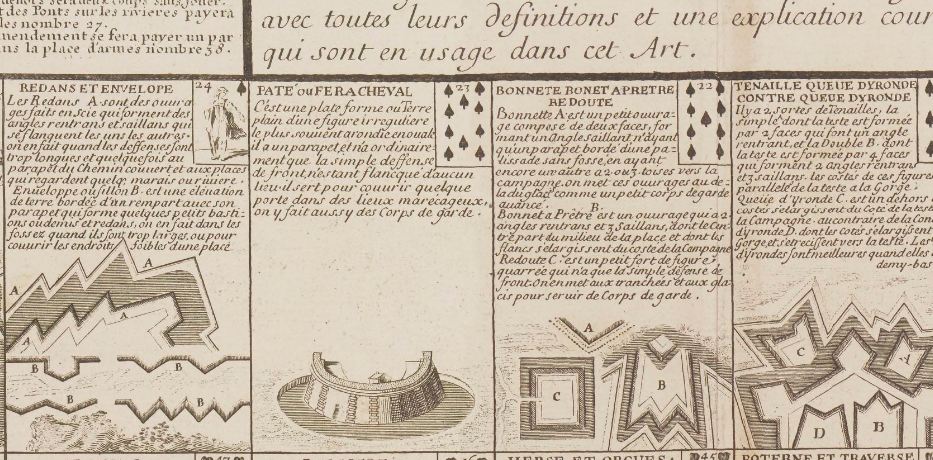 des Ponts sur les rivieres payera
les nombre 27.
mendement se fera payer un par
ns la place d'armes nombre 38.
avec toutes leurs definitions et une explication cour
qui sont en usage dans cet Art.
REDANS ET ENVELOPE
24
Les Redans A sont des ouura
ges faits en scie qui forment des
angles rentrans et saillans qui
se flanquent les uns les autres.
on en fait quand les deffenses sont
trop longues et quelquefois au
parapet du Chemin couvert et aux places
qui regardent quelq. marais ou riuiere.
Enueloppe ou sillon B. est une eleuation
de terre bordée d'un rempart avec son
parapet qui forme quelques petits basti-
ons ou demis et redans, on en fait dans les
fossez quand ils sont trop larges, ou pour
couurir les endroits foibles d'une place
A
A
A
B
B
B
B
PATE ou FER A CHEVAL
23
C'est une plate forme ou Terre
plain d'une figure irreguliere
le plus souuent arondie en ouale
il a un parapet, et n'a ordinaire-
ment que la simple deffense
de front, n'estant flancqué d'aucun
lieu. il sert pour couurir quelque
porte dans des lieux marécageux,
on y fait aussy des Corps de garde.
BONNETE BONET A PRETRE
REDOUTE
22
Bonnette A est un petit ouura-
ge composé de deux faces, for
mant un Angle saillant n'ayant
qu'un parapet bordé d'une pa-
lissade sans fossé, en ayant
encore un autre a 2. ou 3. toises vers la
campagne, on met ces ouurages au de-
la du glacis comme un petit corps de garde
auancé.
B.
Bonnet a Prêtre est un ouurage qui a 2.
angles rentrans et 3 Saillans, dont le Cen-
tre part du milieu de la place et dont les
flancs s'elargissent du costé de la Campagne
Redoute C. est un petit fort de figure
quarrée qui n'a que la simple defense de
front. on en met aux tranchées et aux gla-
cis pour seruir de Corps de garde.
A
B
C
TENAILLE QUEUE DYRONDE
CONTRE QUEUE DYRONDE
Il y a 2. sortes de Tenailles, la
simple dont la teste est formée
par 2 faces qui font un angle
rentrant, et la Double B. dont
la teste est formée par 4 faces
qui forment 2 Angles rentrans
et 3 saillans. les costéz de ces figures
parallele de la teste a la Gorge.
Queüe d'Yronde C. est un dehors
costéz s'elargissent du Coté de la teste
la Campagne, au contraire de la Con
d'yronde D. dont les cotés s'elargissent
Gorge, et s'etrecissent vers la teste. Les
d'yrondes sont meilleures quand elles
demy-bas
C
A
D
B
47
46
HERSE ET ORGUES.
45
POTERNE ET TRAVERSE